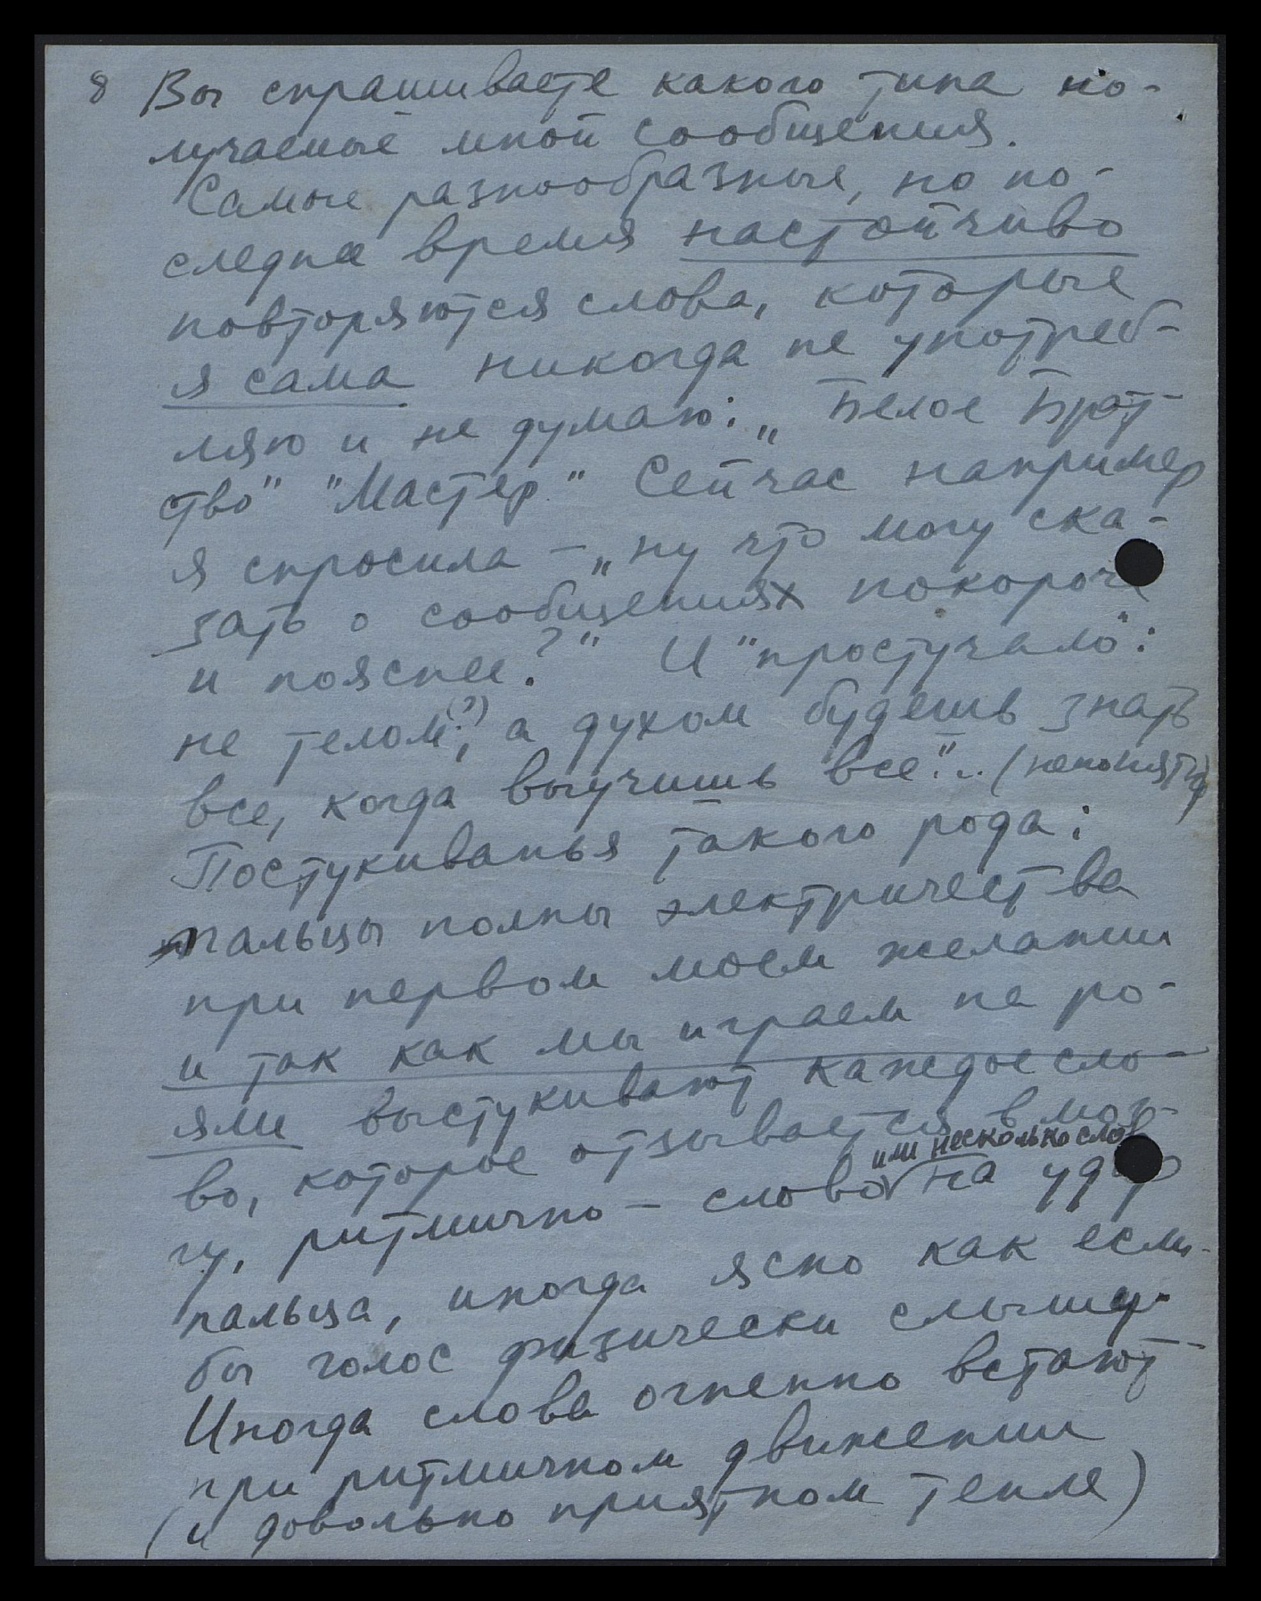 8 Вы спрашиваете какого типа по-
лучаемые мной сообщения.
Самые разнообразные, но по-
следнее время настойчиво
повторяются слова, которые
я сама никогда не употреб-
ляю и не думаю: „Белое Брат-
ство" "Мастер." Сейчас например
я спросила — „ну что могу ска-
зать о сообщениях покороче
и пояснее?" И "простучало":
не телом(?), а духом будешь знать
все, когда выучишь все.".. (непонятно)
Постукиванья такого рода:
пальцы полны электричества
при первом моем желании
и так как мы играем на ро-
яле выстукивают каждое сло-
во, которое отзывается в моз-
гу, ритмично — слово или несколько слов на удар
пальца, иногда ясно как если-
бы голос физически слышу.
Иногда слова огненно встают
при ритмичном движении
(и довольно приятном тепле)